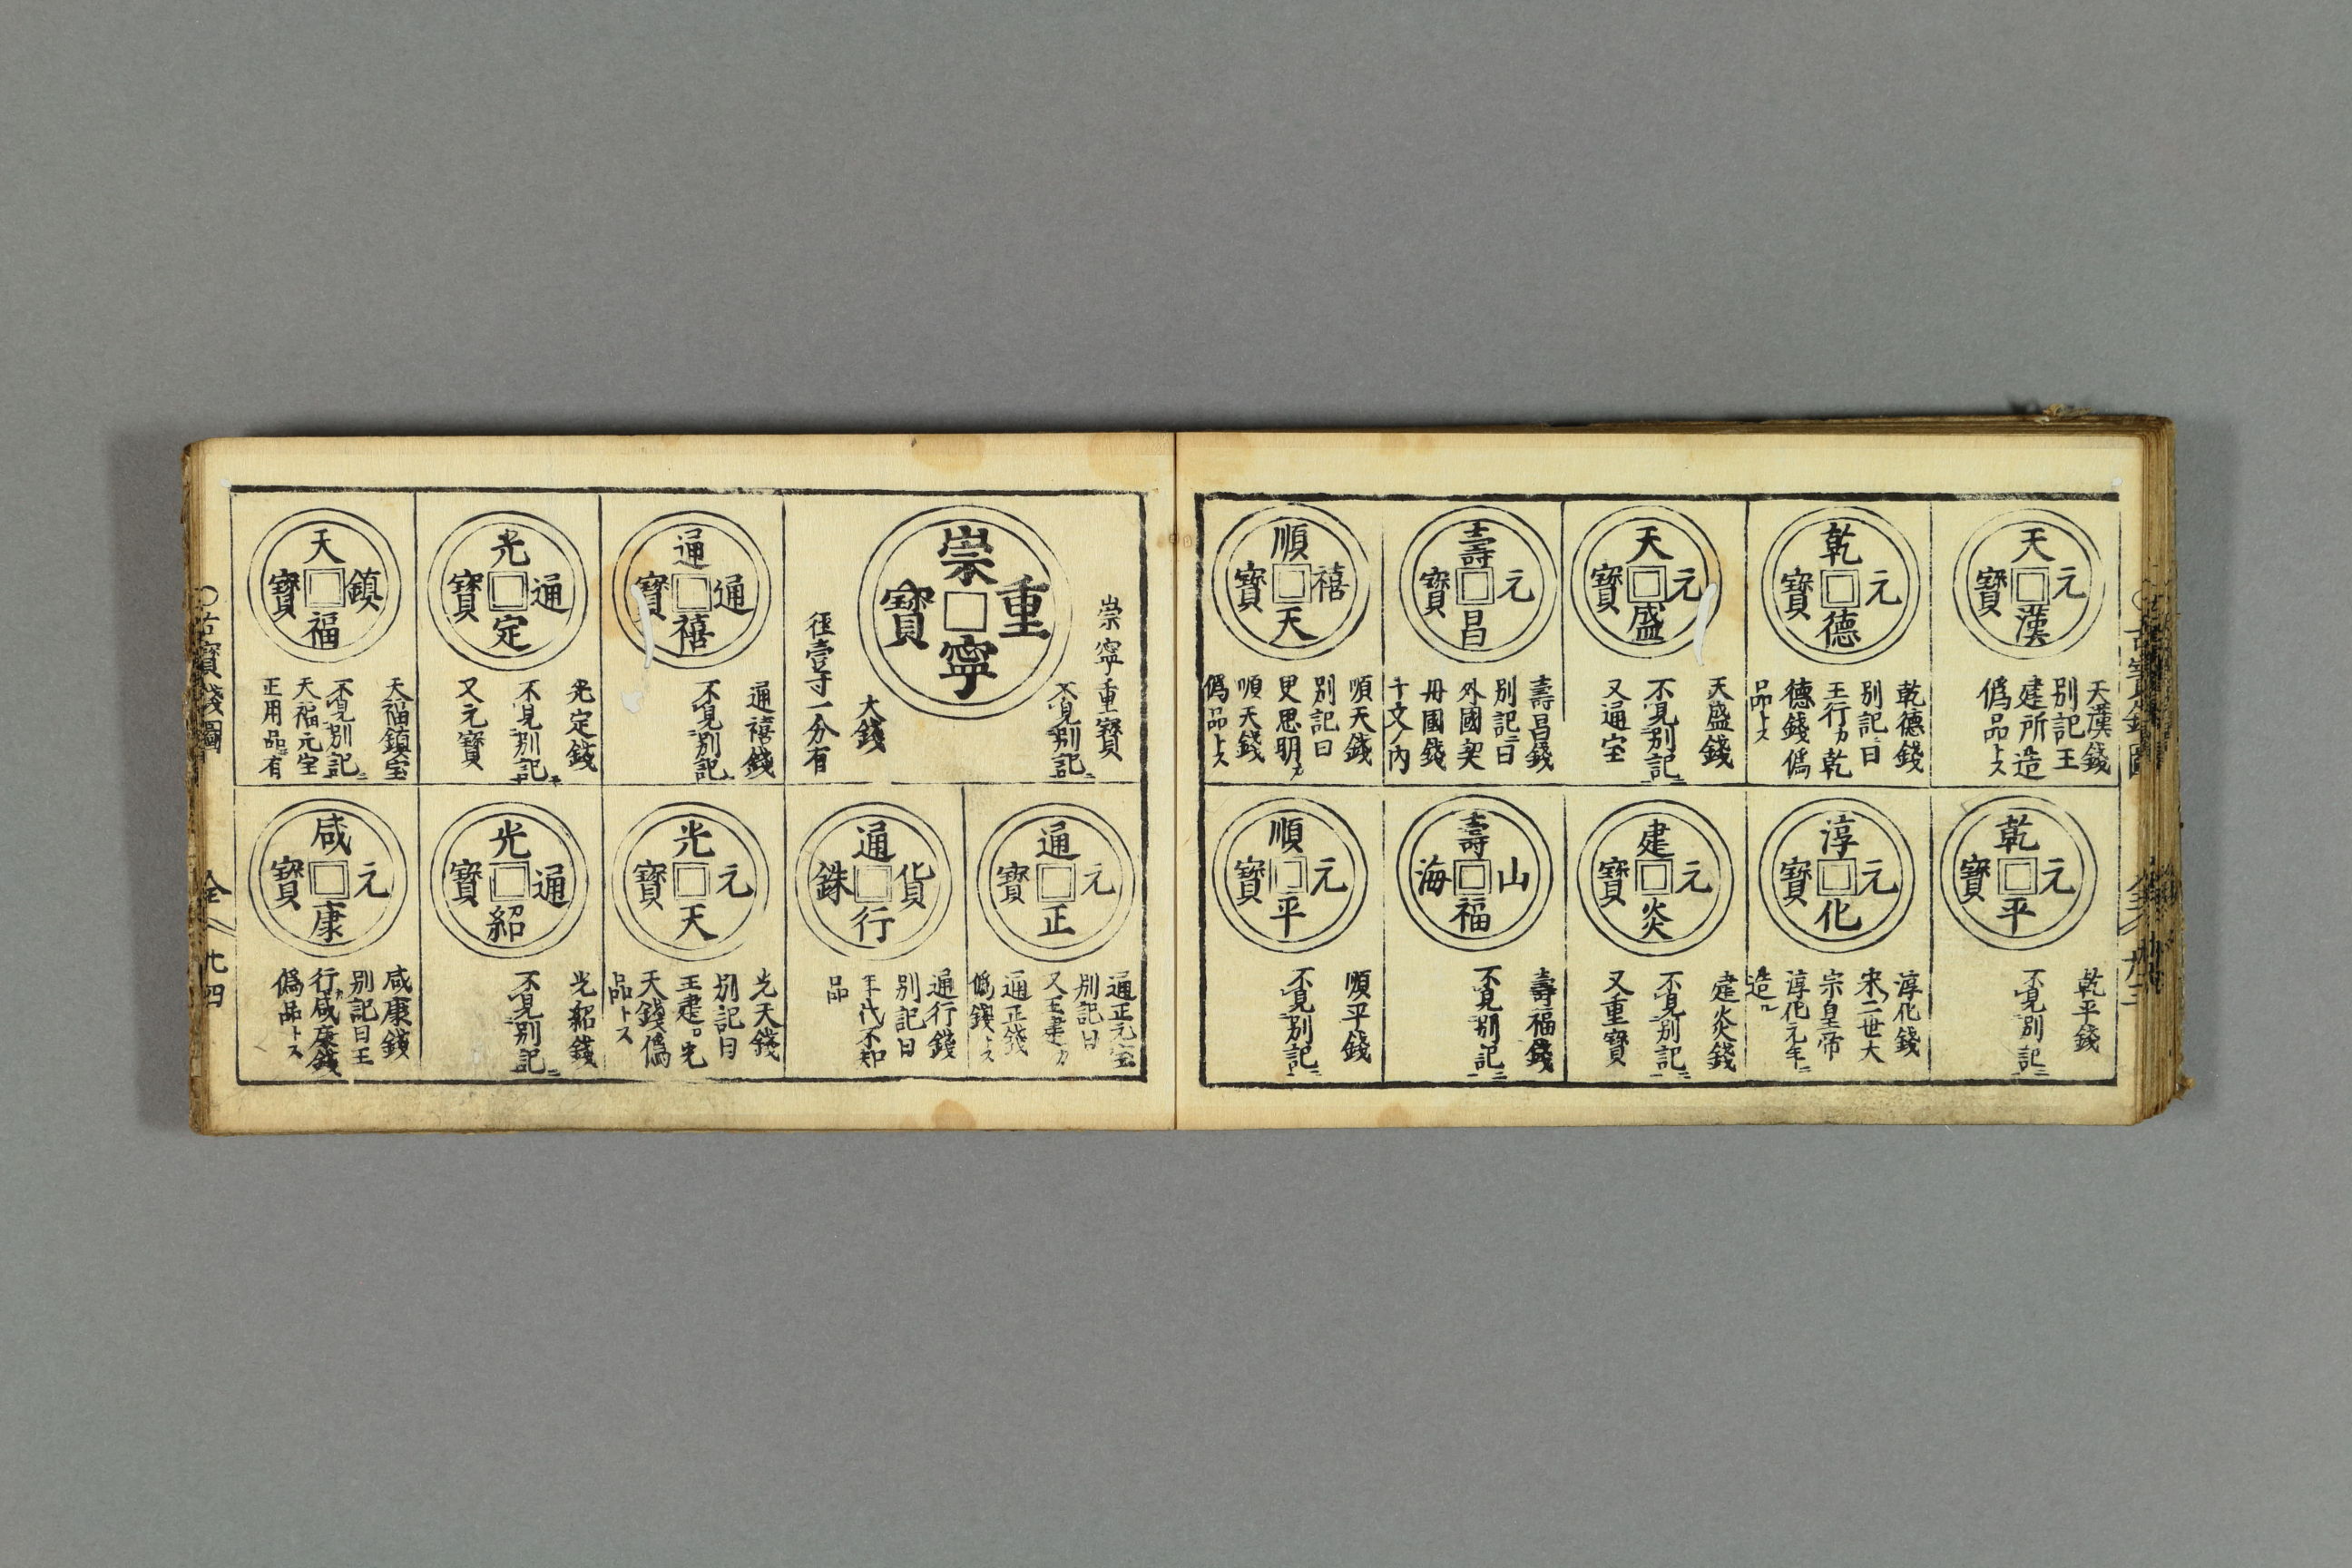 天漢元寶
天漢錢
別記王
建所造
偽品トス
乾德元寶
乾德錢
別記ニ曰
王行カ乾
德錢偽
品トス
天盛元寶
天盛錢
不見別記ニ
又通宝
壽昌元寶
壽昌錢
別記ニ曰
外國契
丹國錢
十文ノ内
順天禧寶
順天錢
別記曰
史思明カ
順天錢
偽品トス
乾平元寶
乾平錢
不見別記ニ
淳化元寶
淳化錢
宋ノ二世大
宗皇帝
淳化元年ニ
造ル
建炎元寶
建炎錢
不見別記ニ
又重寶
壽福山海
壽福錢
不見別記ニ
順平元寶
順平錢
不見別記ニ
崇寧重寶
崇寧重寶
不見別記ニ
大錢
径壹寸一分有
通禧通寶
通禧錢
不見別記
光定通寶
光定錢
不見別記ニ
又元寶
天福鎮寶
天福鎮宝
不見別記ニ
天福元宝
正用品ニ有
通正元寶
通正元宝
別記曰
又王建カ
通正錢
偽錢トス
通行貨銖
通行錢
別記曰
年代不知
品
光天元寶
光天錢
別記曰
王建ロ光
天錢偽
品トス
光紹通寶
光紹錢
不見別記ニ
咸康元寶
咸康錢
別記曰王
行カ咸康錢
偽品トス
〇古寶錢圖
全
九四